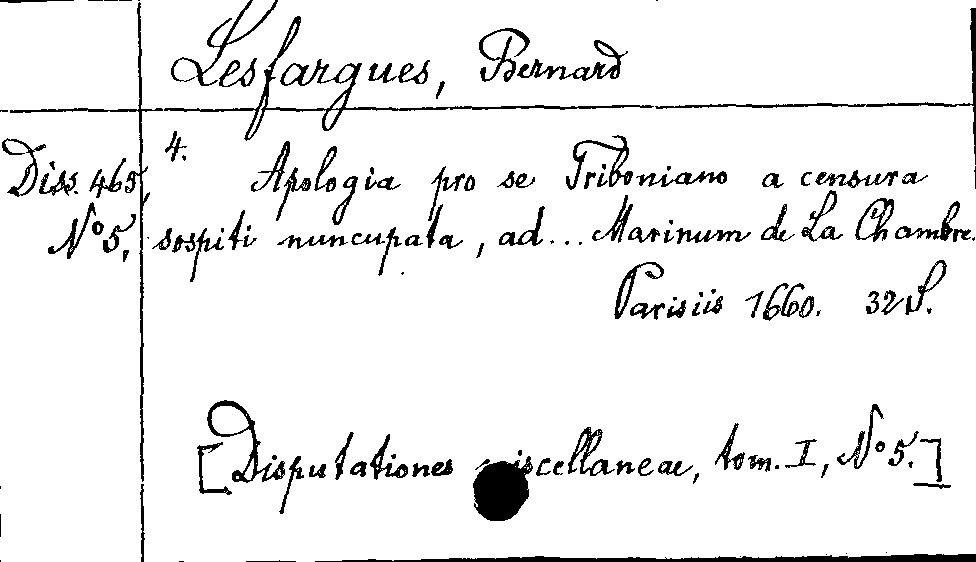 Lesfargues, Bernard
Diss. 465,
No 5,
4.
Apologia pro se Triboniano a censura
sospiti nuncupata, ad... Marinum de La Chambre.
Parisiis 1660. 32 S.
[Disputationes miscellaneae, tom. I, No 5.]